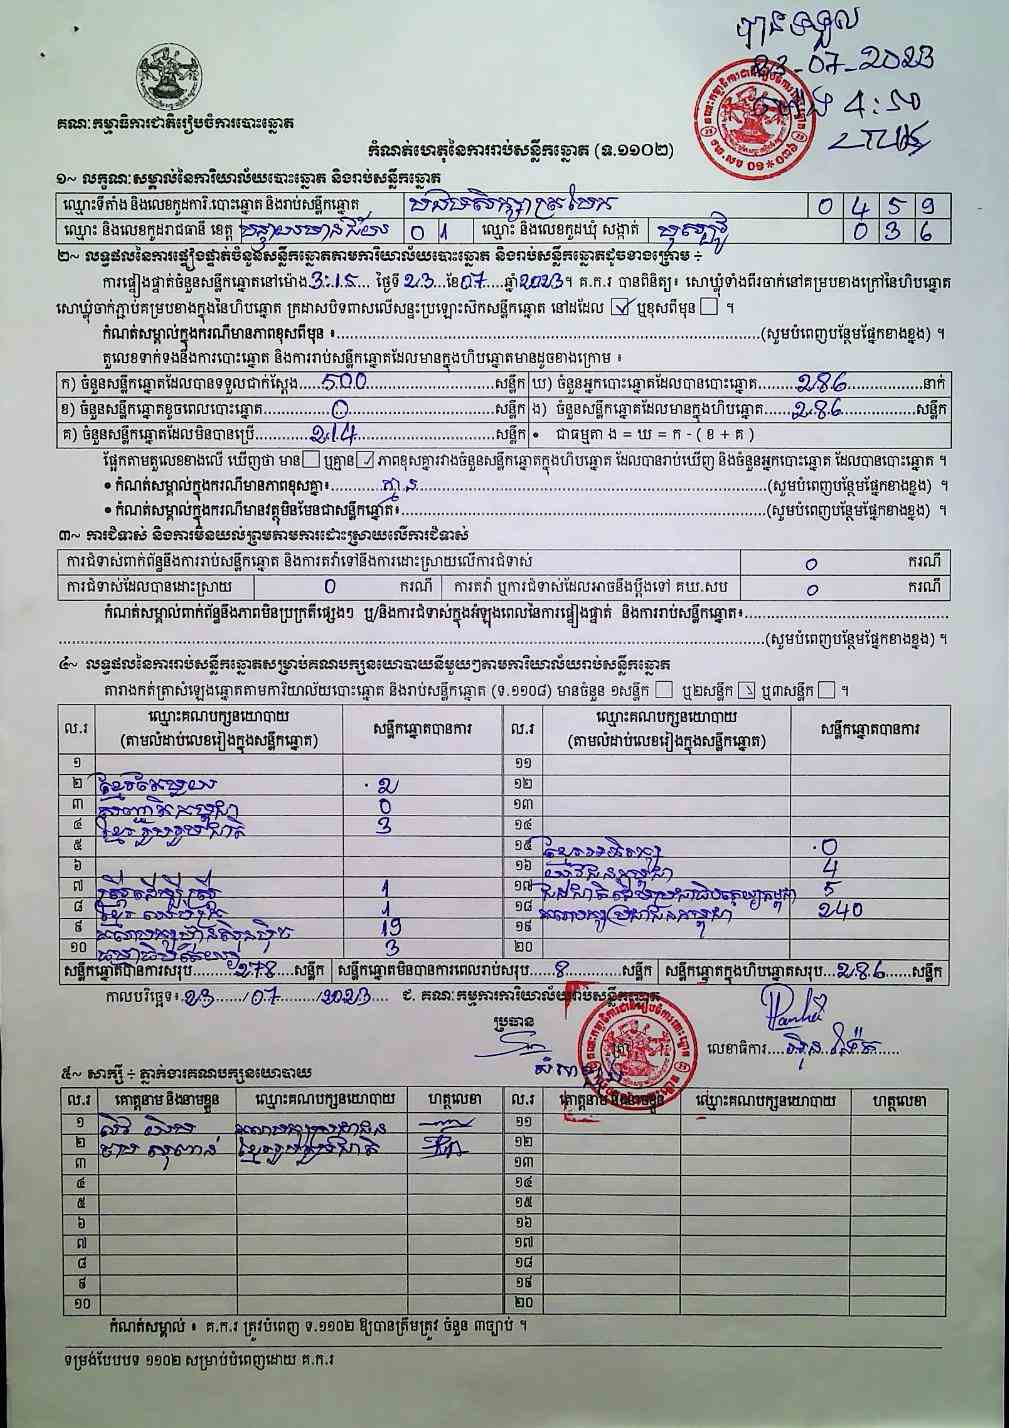 បានទទួល
23-07-2023
ម៉ោង 4:50
គណៈកម្មាធិការជាតិរៀបចំការបោះឆ្នោត
កំណត់ហេតុនៃការរាប់សន្លឹកឆ្នោត (ទ.១១០២)
១~ លក្ខណៈសម្គាល់នៃការិយាល័យបោះឆ្នោត និងរាប់សន្លឹកឆ្នោត
ឈ្មោះទីតាំង និងលេខកូដការិ.បោះឆ្នោត និងរាប់សន្លឹកឆ្នោត 0 4 5 9
ឈ្មោះ និងលេខកូដរាជធានី ខេត្ត បន្ទាយមានជ័យ 0 1 ឈ្មោះ និងលេខកូដឃុំ សង្កាត់ 0 3 6
២~ លទ្ធផលនៃការផ្ទៀងផ្ទាត់ចំនួនសន្លឹកឆ្នោតតាមការិយាល័យបោះឆ្នោត និងរាប់សន្លឹកឆ្នោតដូចខាងក្រោម ៖
ការផ្ទៀងផ្ទាត់ចំនួនសន្លឹកឆ្នោតនៅម៉ោង 3:15 ថ្ងៃទី 23 ខែ 07 ឆ្នាំ 2023។ គ.ក.រ បានពិនិត្យ៖ សោឃ្លុំទាំងពីរចាក់នៅគម្របខាងក្រៅនៃហិបឆ្នោត
សោឃ្លុំចាក់ភ្ជាប់គម្របខាងក្នុងនៃហិបឆ្នោត ក្រដាសបិទពាសលើសន្ទះប្រឡោះស៊កសន្លឹកឆ្នោត នៅដដែល ✓ ឬខុសពីមុន ។
កំណត់សម្គាល់ក្នុងករណីមានភាពខុសពីមុន ៖ (សូមបំពេញបន្ថែមផ្នែកខាងខ្នង) ។
តួលេខទាក់ទងនឹងការបោះឆ្នោត និងការរាប់សន្លឹកឆ្នោតដែលមានក្នុងហិបឆ្នោតមានដូចខាងក្រោម ៖
ក) ចំនួនសន្លឹកឆ្នោតដែលបានទទួលជាក់ស្តែង 500 សន្លឹក ឃ) ចំនួនអ្នកបោះឆ្នោតដែលបានបោះឆ្នោត 286 នាក់
ខ) ចំនួនសន្លឹកឆ្នោតខូចពេលបោះឆ្នោត 0 សន្លឹក ង) ចំនួនសន្លឹកឆ្នោតដែលមានក្នុងហិបឆ្នោត 286 សន្លឹក
គ) ចំនួនសន្លឹកឆ្នោតដែលមិនបានប្រើ 214 សន្លឹក • ជាធម្មតា ង = ឃ = ក - ( ខ + គ )
ផ្អែកតាមតួលេខខាងលើ ឃើញថា មាន ឬគ្មាន ✓ ភាពខុសគ្នារវាងចំនួនសន្លឹកឆ្នោតក្នុងហិបឆ្នោត ដែលបានរាប់ឃើញ និងចំនួនអ្នកបោះឆ្នោត ដែលបានបោះឆ្នោត ។
• កំណត់សម្គាល់ក្នុងករណីមានភាពខុសគ្នា៖ គ្មាន (សូមបំពេញបន្ថែមផ្នែកខាងខ្នង) ។
• កំណត់សម្គាល់ក្នុងករណីមានវត្ថុមិនមែនជាសន្លឹកឆ្នោត៖ (សូមបំពេញបន្ថែមផ្នែកខាងខ្នង) ។
៣~ ការជំទាស់ និងការមិនយល់ព្រមតាមការដោះស្រាយលើការជំទាស់
ការជំទាស់ពាក់ព័ន្ធនឹងការរាប់សន្លឹកឆ្នោត និងការតវ៉ាទៅនឹងការដោះស្រាយលើការជំទាស់ 0 ករណី
ការជំទាស់ដែលបានដោះស្រាយ 0 ករណី ការតវ៉ា ឬការជំទាស់ដែលអាចនឹងប្តឹងទៅ គឃ.សប 0 ករណី
កំណត់សម្គាល់ពាក់ព័ន្ធនឹងភាពមិនប្រក្រតីផ្សេងៗ ឬ/និងការជំទាស់ក្នុងអំឡុងពេលនៃការផ្ទៀងផ្ទាត់ និងការរាប់សន្លឹកឆ្នោត៖
(សូមបំពេញបន្ថែមផ្នែកខាងខ្នង) ។
៤~ លទ្ធផលនៃការរាប់សន្លឹកឆ្នោតសម្រាប់គណបក្សនយោបាយនីមួយៗតាមការិយាល័យរាប់សន្លឹកឆ្នោត
តារាងកត់ត្រាសំឡេងឆ្នោតតាមការិយាល័យបោះឆ្នោត និងរាប់សន្លឹកឆ្នោត (ទ.១១០៨) មានចំនួន ១សន្លឹក ឬ២សន្លឹក ឬ៣សន្លឹក ។
ល.រ ឈ្មោះគណបក្សនយោបាយ សន្លឹកឆ្នោតបានការ ល.រ ឈ្មោះគណបក្សនយោបាយ សន្លឹកឆ្នោតបានការ
(តាមលំដាប់លេខរៀងក្នុងសន្លឹកឆ្នោត) (តាមលំដាប់លេខរៀងក្នុងសន្លឹកឆ្នោត)
១ ១១
២ 2 ១២
៣ 0 ១៣
៤ ខ្មែររួបរួមជាតិ 3 ១៤
៥ ១៥ 0
៦ ១៦ យុវជនកម្ពុជា 4
៧ ស្ត្រីដើម្បីស្ត្រី 1 ១៧ 5
៨ 1 ១៨ គណបក្សប្រជាជនកម្ពុជា 240
៩ គណបក្សហ៊្វុនស៊ិនប៉ិច 19 ១៩
១០ 3 ២០
សន្លឹកឆ្នោតបានការសរុប 278 សន្លឹក សន្លឹកឆ្នោតមិនបានការពេលរាប់សរុប 8 សន្លឹក សន្លឹកឆ្នោតក្នុងហិបឆ្នោតសរុប 286 សន្លឹក
កាលបរិច្ឆេទ៖ 23/07/2023 ជ. គណៈកម្មការការិយាល័យរាប់សន្លឹកឆ្នោត
ប្រធាន
លេខាធិការ
៥~ សាក្សី ÷ ភ្នាក់ងារគណបក្សនយោបាយ
ល.រ គោត្តនាម និងនាមខ្លួន ឈ្មោះគណបក្សនយោបាយ ហត្ថលេខា ល.រ គោត្តនាម និងនាមខ្លួន ឈ្មោះគណបក្សនយោបាយ ហត្ថលេខា
១ គណបក្សប្រជាជន ១១
២ ខ្មែររួបរួមជាតិ ១២
៣ ១៣
៤ ១៤
៥ ១៥
៦ ១៦
៧ ១៧
៨ ១៨
៩ ១៩
១០ ២០
កំណត់សម្គាល់ ៖ គ.ក.រ ត្រូវបំពេញ ទ.១១០២ ឱ្យបានត្រឹមត្រូវ ចំនួន ៣ច្បាប់ ។
ទម្រង់បែបបទ ១១០២ សម្រាប់បំពេញដោយ គ.ក.រ